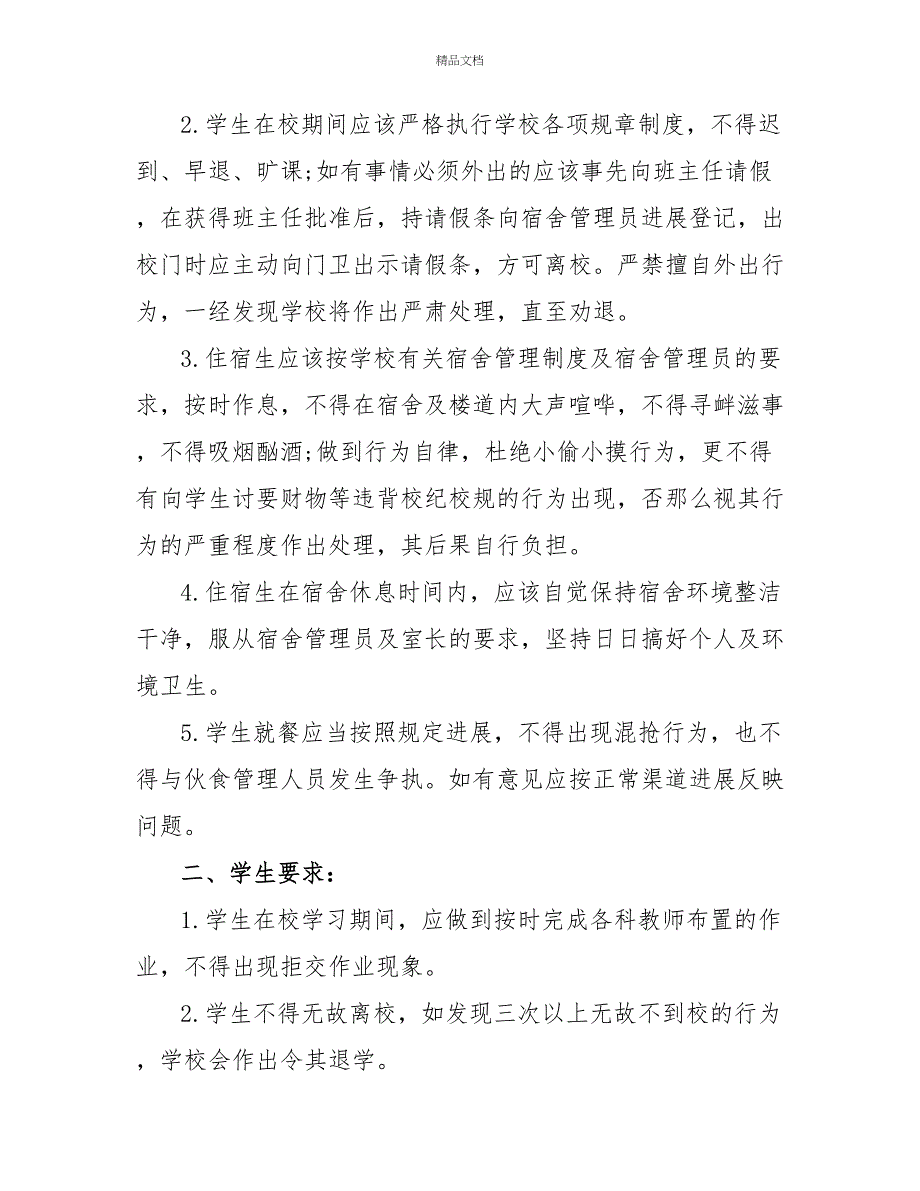 精品文档
2.学生在校期间应该严格执行学校各项规章制度，不得迟
到、早退、旷课;如有事情必须外出的应该事先向班主任请假
，在获得班主任批准后，持请假条向宿舍管理员进展登记，出
校门时应主动向门卫出示请假条，方可离校。严禁擅自外出行
为，一经发现学校将作出严肃处理，直至劝退。
3.住宿生应该按学校有关宿舍管理制度及宿舍管理员的要
求，按时作息，不得在宿舍及楼道内大声喧哗，不得寻衅滋事
，不得吸烟酗酒;做到行为自律，杜绝小偷小摸行为，更不得
有向学生讨要财物等违背校纪校规的行为出现，否那么视其行
为的严重程度作出处理，其后果自行负担。
4.住宿生在宿舍休息时间内，应该自觉保持宿舍环境整洁
干净，服从宿舍管理员及室长的要求，坚持日日搞好个人及环
境卫生。
5.学生就餐应当按照规定进展，不得出现混抢行为，也不
得与伙食管理人员发生争执。如有意见应按正常渠道进展反映
问题。
二、学生要求：
1.学生在校学习期间，应做到按时完成各科教师布置的作
业，不得出现拒交作业现象。
2.学生不得无故离校，如发现三次以上无故不到校的行为
，学校会作出令其退学。